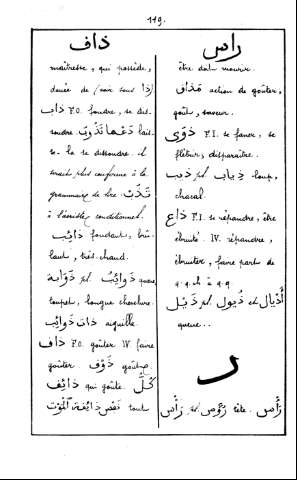 119.
ذاف
maîtresse, qui possède,
douée de (voir sous ذا)
ذاب F.O. fondre, se dis-
soudre. دعها تذوب lais-
se-la se dissoudre. il
serait plus conforme à la
grammaire de lire تذب
à l'اعراب conditionnel.
ذائب fondant, brû-
lant, très chaud.
ذوابة pl. ذوائب queue,
toupet, longue chevelure.
ذات ذوائب aiguille.
ذاف F.O. goûter IV faire
goûter. ذوف goûter.
ذائف qui goûte. كل
نفس ذائفة الموت tout
راس
être doit mourir.
مذاف action de goûter,
goût, saveur.
ذوى F.I. se faner, se
flétrir, disparaître.
ذيب pl. ذياب loup,
chacal.
ذاع F.I. se répandre, être
ébruité. IV. répandre,
ébruiter, faire part de
q.q.ch à q.q
ذيل pl. ذيول et أذيال
queue..
ر
رأس pl. رؤوس tête. رأس